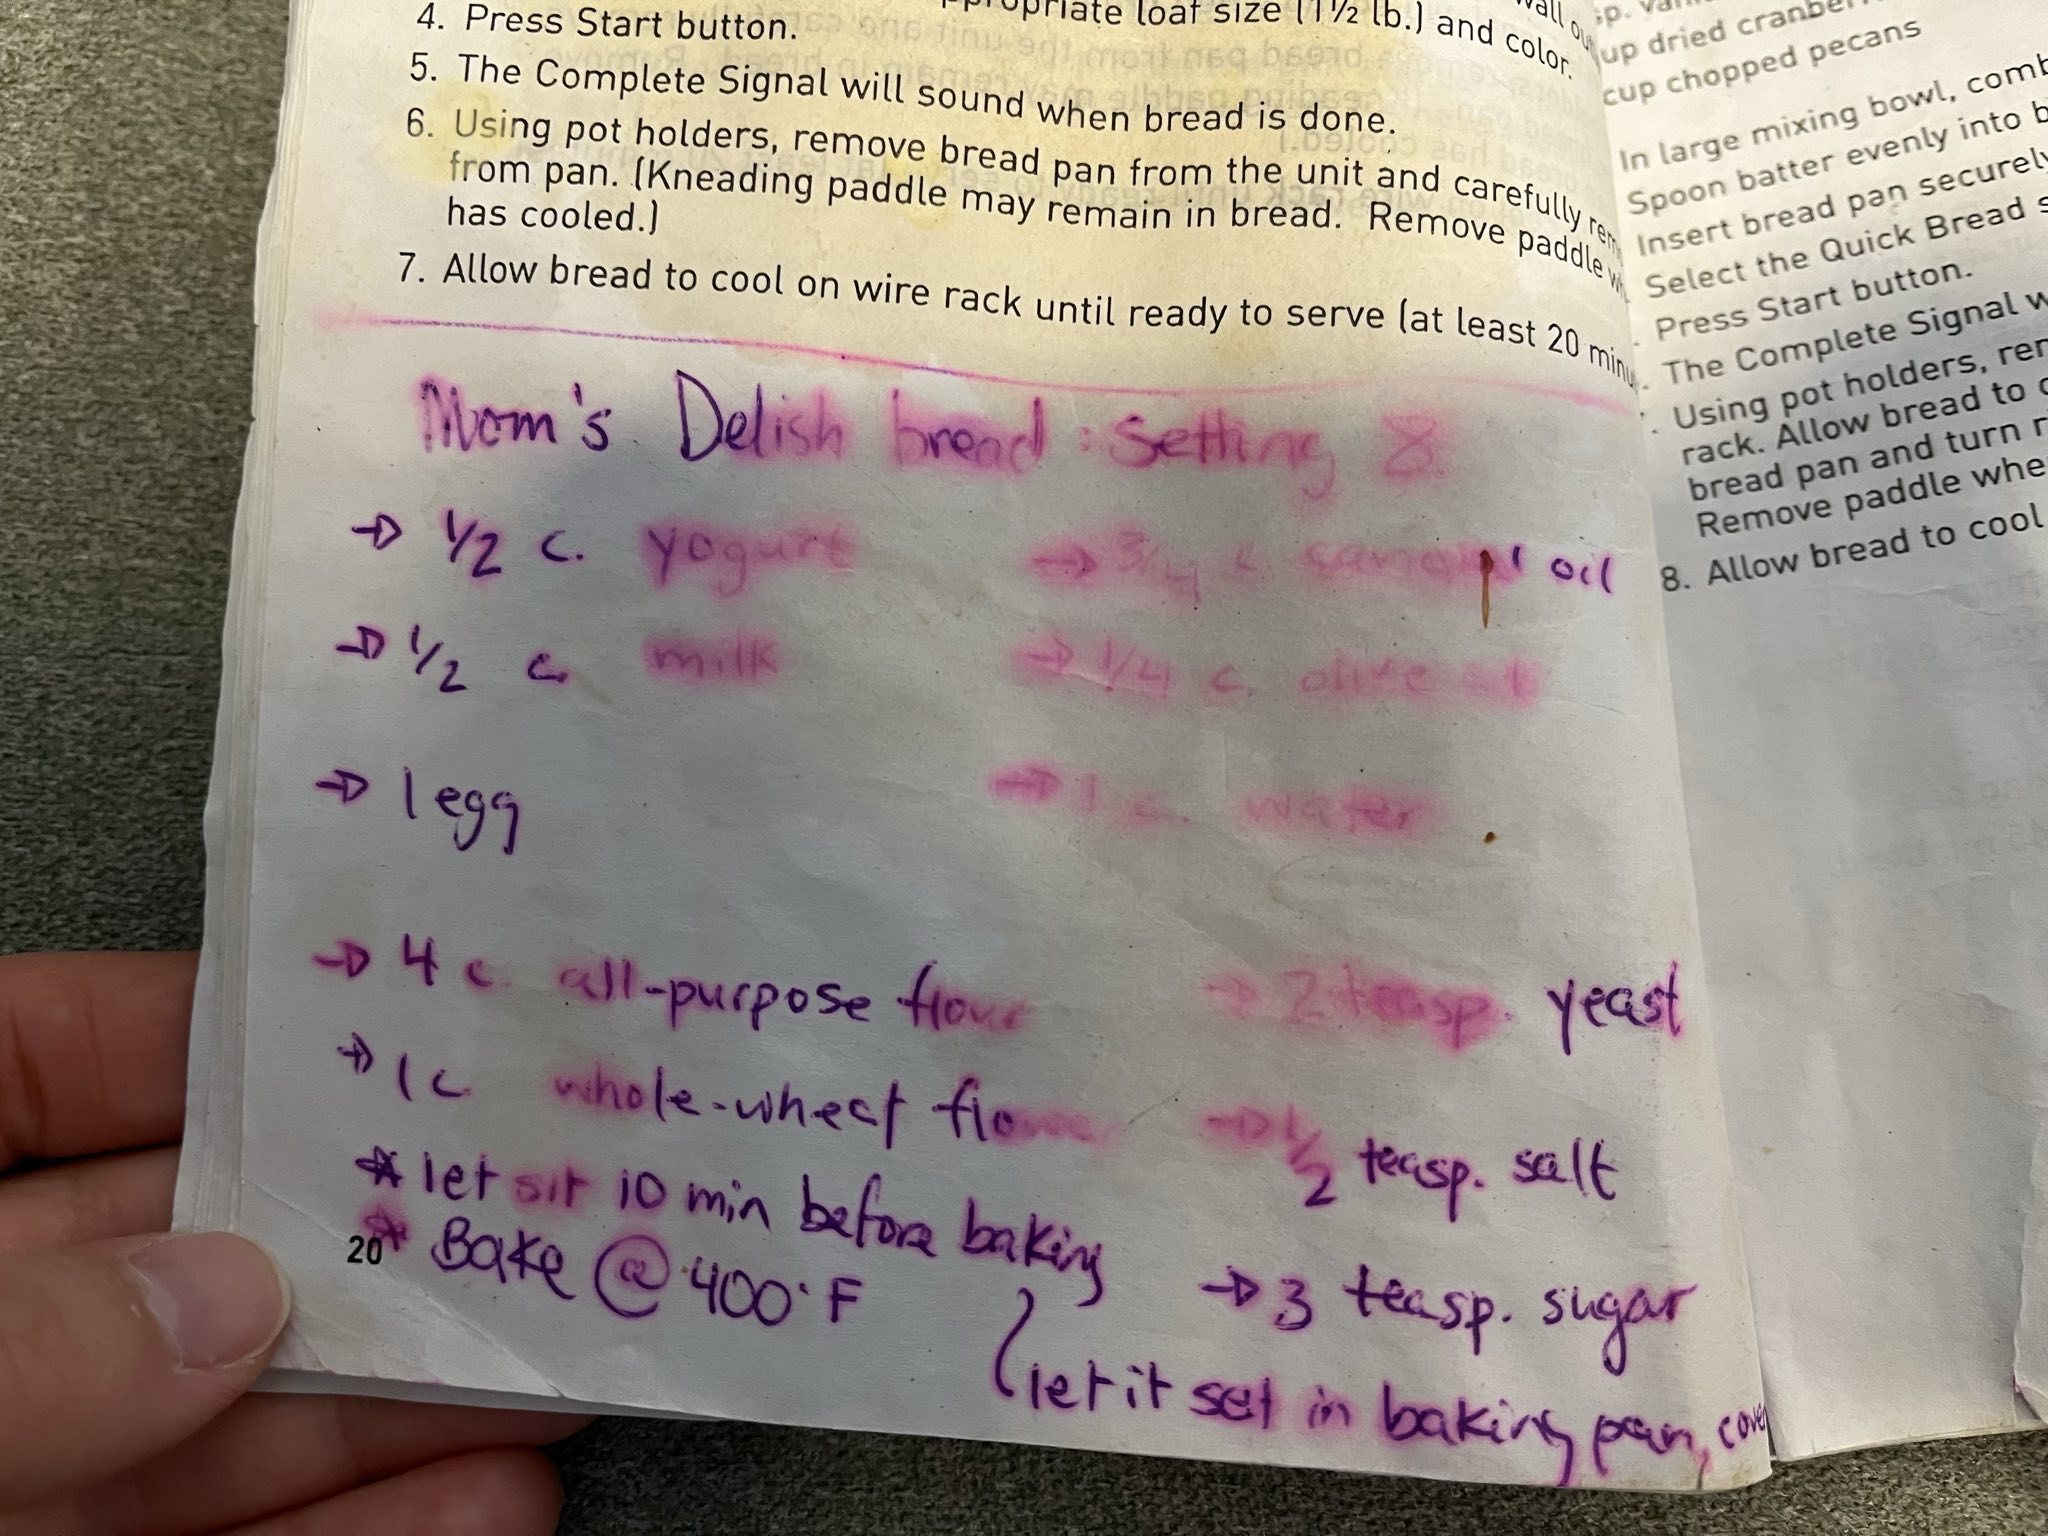 appropriate loaf size (1½ lb.) and color.
4. Press Start button.
5. The Complete Signal will sound when bread is done.
6. Using pot holders, remove bread pan from the unit and carefully
from pan. (Kneading paddle may remain in bread. Remove paddle
has cooled.)
7. Allow bread to cool on wire rack until ready to serve (at least 20
Mom's Delish bread: Setting 8
→ 1/2 c. yogurt
→ 3/4 c. oil
→ 1/2 c. milk
→ 1/4 c. olive
→ 1 egg
→ 1 c. water
→ 4 c. all-purpose flour
→ 2 teasp. yeast
→ 1 c. whole-wheat flour
→ 1/2 teasp. salt
* let sit 10 min before baking
* Bake @ 400°F
→ 3 teasp. sugar
let it set in baking pan,
20
dried cranberries
cup chopped pecans
In large mixing bowl,
Spoon batter evenly into
Insert bread pan securely
Select the Quick Bread
Press Start button.
The Complete Signal
Using pot holders,
rack. Allow bread to
bread pan and turn
Remove paddle
8. Allow bread to cool